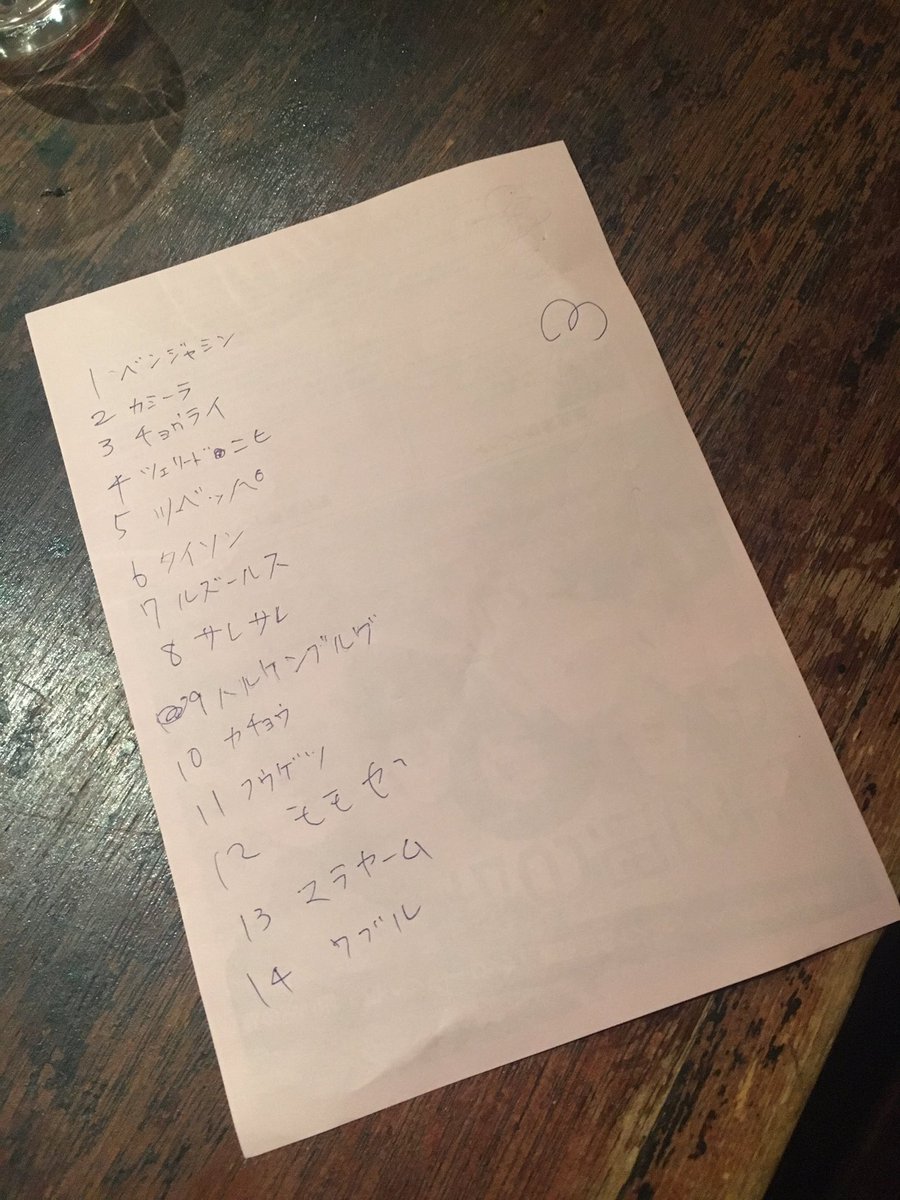 1 ベンジャミン
2 カミーラ
3 チョウライ
4 ツェリードニヒ
5 ツベッパ
6 タイソン
7 ルズールス
8 サレサレ
9 ハルケンブルグ
10 カチョウ
11 フウゲツ
12 モモゼ
13 マラヤーム
14 ワブル